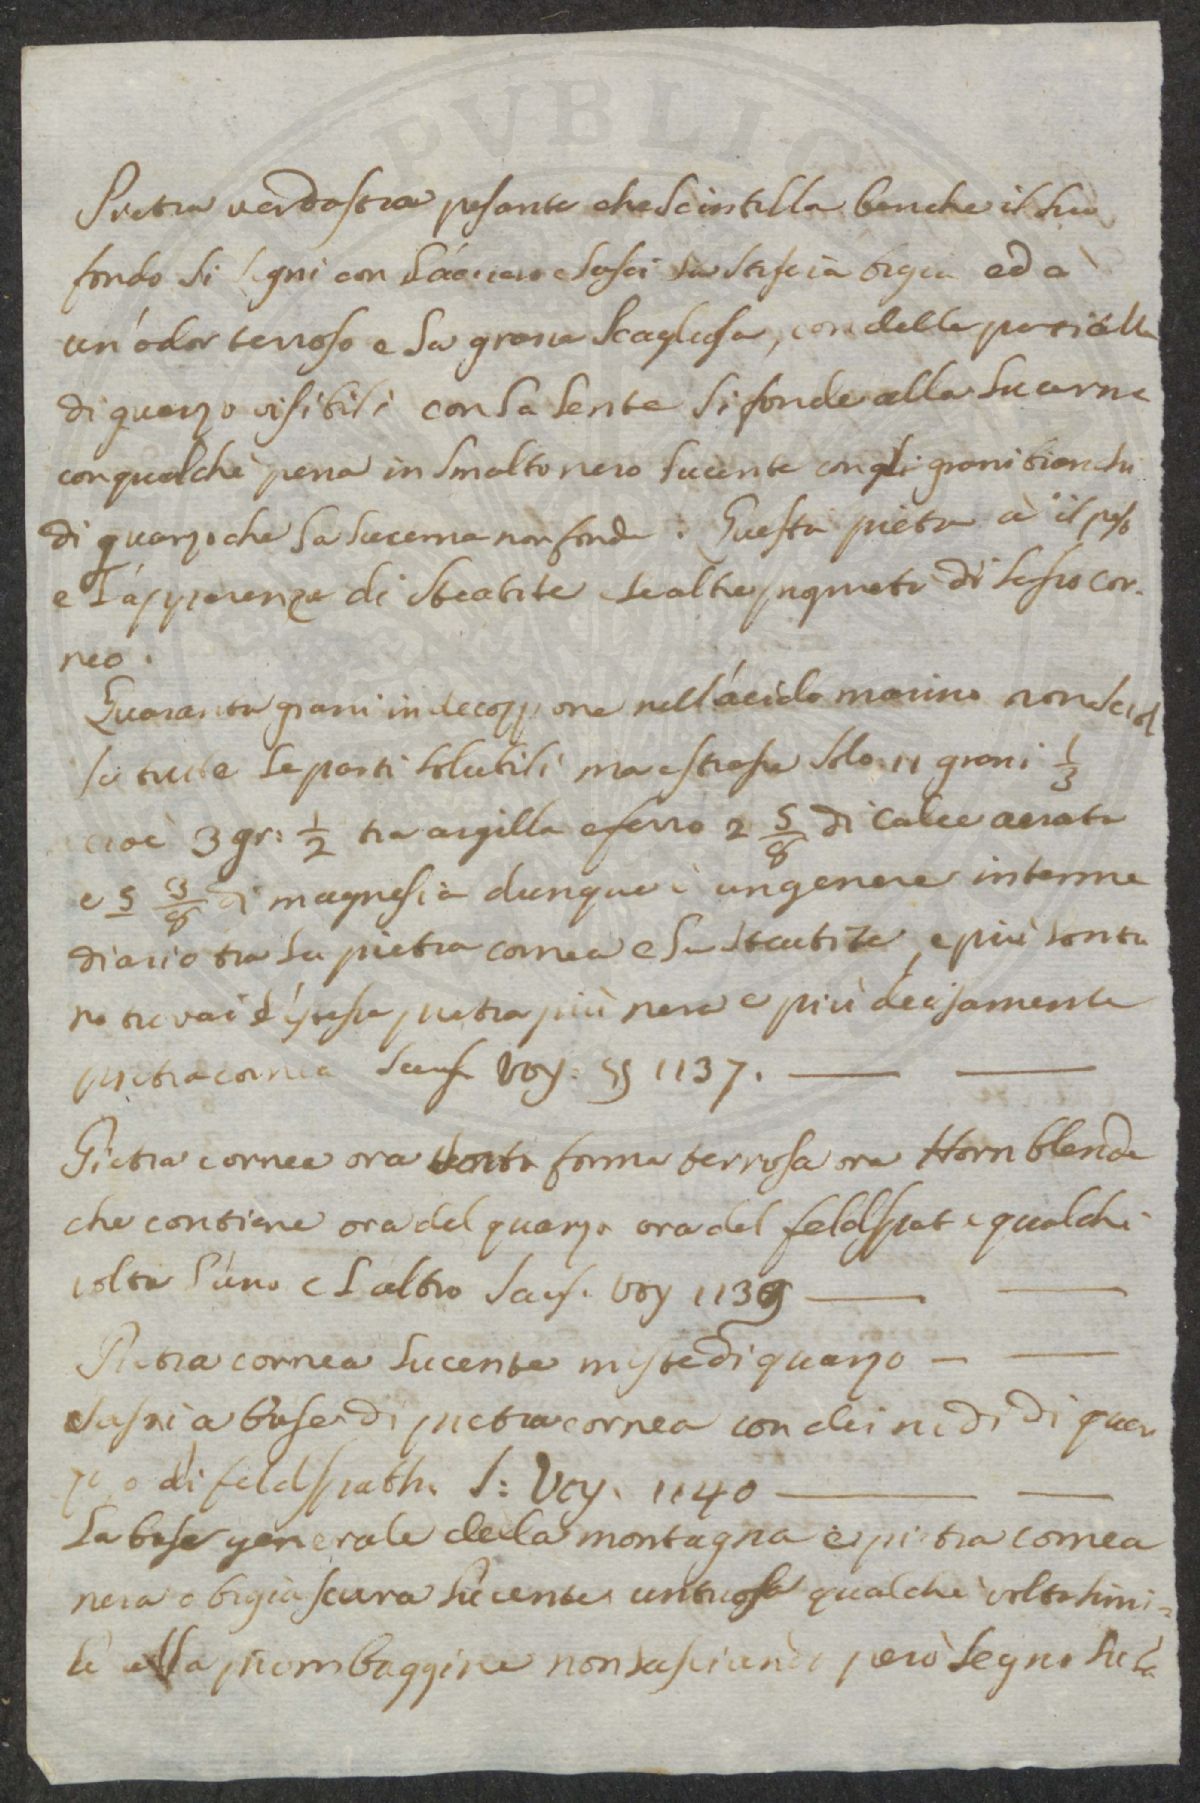 Pietra verdastra pesante che scintilla benche il suo
fondo si segni con l'acciaro e lasci la striscia bigia ed à
un'odor terroso e la grana scagliosa, con delle particelle
di quarzo visibili con la lente si fonde alla lucerna
con qualche pena in smalto nero lucente con gli grani bianchi
di quarzo che la lucerna non fonde. Questa pietra à il peso
e l'apparenza di steatite e le altre proprietà di sasso cor-
neo.
Quaranta grani in decozzione nell'ácido marino non sciol
se tutte le parti solubili ma estrasse solo 11 grani 1/3
cioè 3 gr: 1/2 tra argilla e ferro 2 5/8 di calce aerata
e 5 3/8 di magnesia dunque è un genere interme
diario tra la pietra cornea e la steatite, e più lonta
no trovai l'istessa pietra più nera e più decisamente
pietra cornea Sauss. Voy. §§ 1137.
Pietra cornea ora sotto forma terrosa ora Hornblenda
che contiene ora del quarzo ora del feldspat e qualche
volta l'uno e l'altro Saus. Voy 1139
Pietra cornea lucente miste di quarzo
Sassi a base di pietra cornea con dei nidi di quar
zo o di feldspath. S: Voy. 1140
La base generale della montagna è pietra cornea
nera o bigia scura lucente untuosa qualche volta simi=
le alla piombaggine non lasciando però segno su la